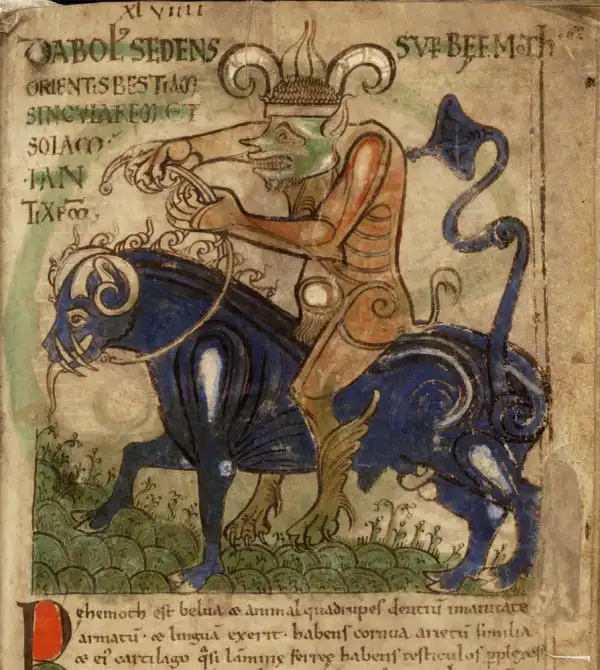 XLVIIII
DIABOL' SEDENS SUP BEEMOTH 62
ORIENTIS BESTIAM
SINGULAREM ET
SOLAM
.I. AN
TIXPM
Behemoth est belua & animal quadrupes dentiū inmanitate
armatū · & linguā exerit · habens cornua arietū similia
& ei' cartilago q̄si lamine ferreę habens testiculos pplexos